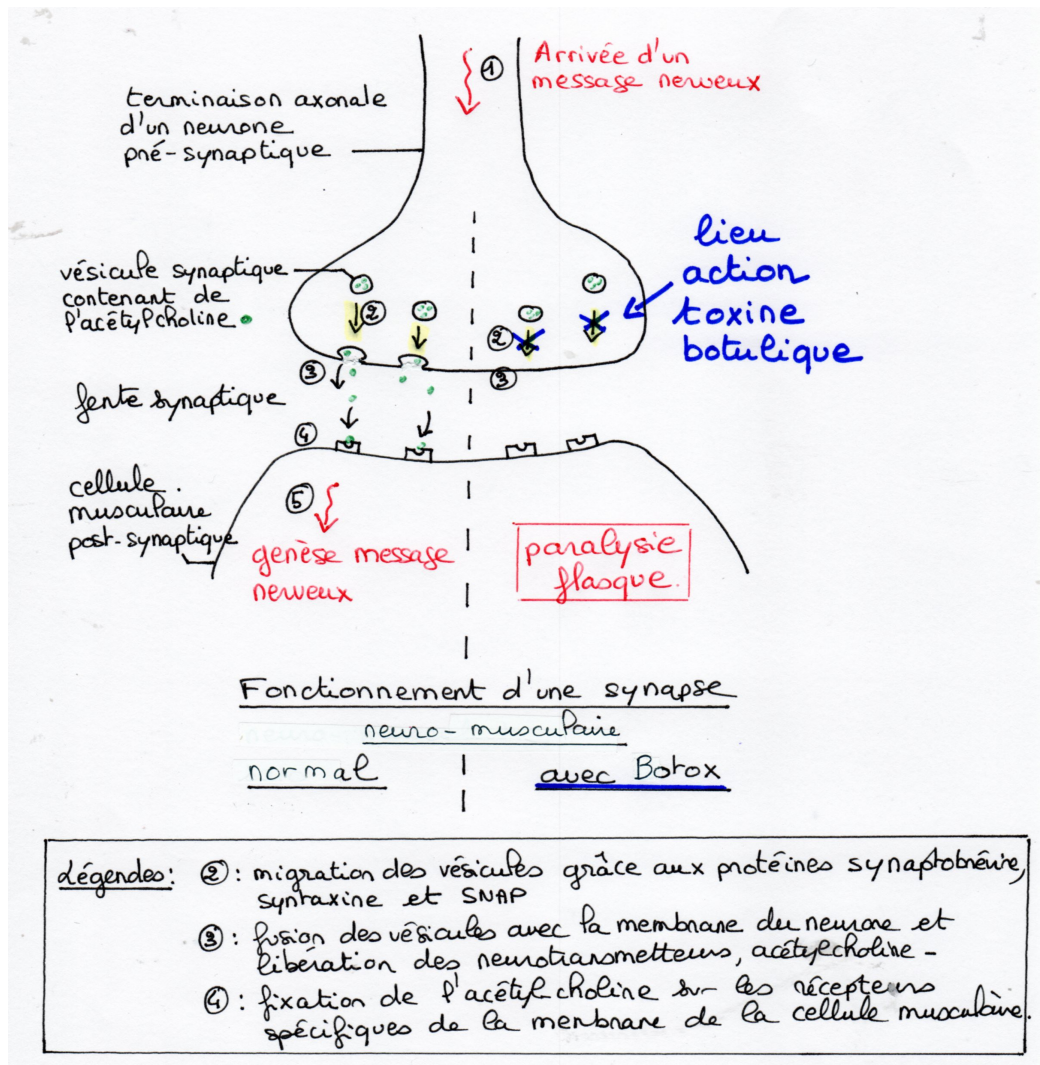 ① Arrivée d'un
message nerveux
terminaison axonale
d'un neurone
pré-synaptique
lieu
action
toxine
botulique
vésicule synaptique
contenant de
l'acétylcholine
②
②
③
③
fente synaptique
④
cellule
musculaire
post-synaptique
⑤
genèse message
nerveux
paralysie
flasque.
Fonctionnement d'une synapse
neuro-musculaire
normal
avec Botox
Légendes: ②: migration des vésicules grâce aux protéines synaptobrévine,
syntaxine et SNAP
③: fusion des vésicules avec la membrane du neurone et
libération des neurotransmetteurs, acétylcholine -
④: fixation de l'acétylcholine sur les récepteurs
spécifiques de la membrane de la cellule musculaire.